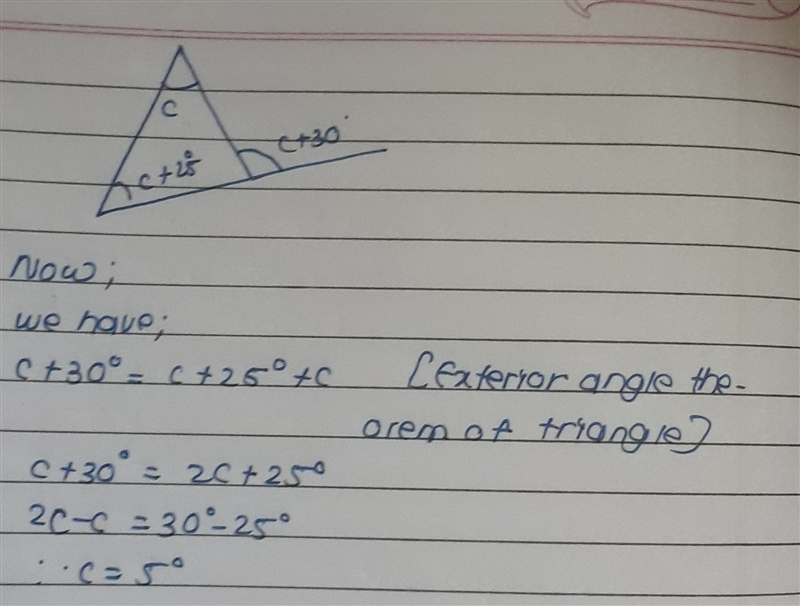 c
c+30°
c+25°
Now;
we have;
c+30° = c+25°+c [Exterior angle the-
orem of triangle]
c+30° = 2c+25°
2c-c = 30°-25°
∴ c = 5°